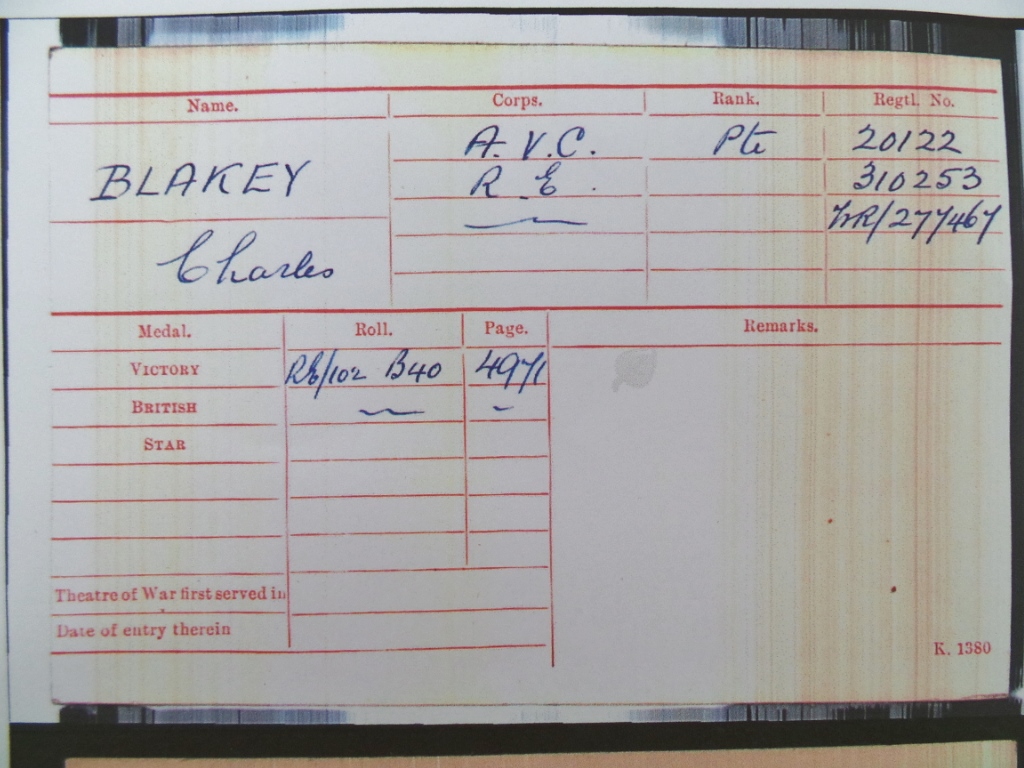 Name. Corps. Rank. Regtl. No.
A.V.C. Pte 20122
BLAKEY R.E. 310253
WR/277467
Charles
Medal. Roll. Page. Remarks.
VICTORY RE/102 B40 4971
BRITISH
STAR
Theatre of War first served in
Date of entry therein
K. 1380